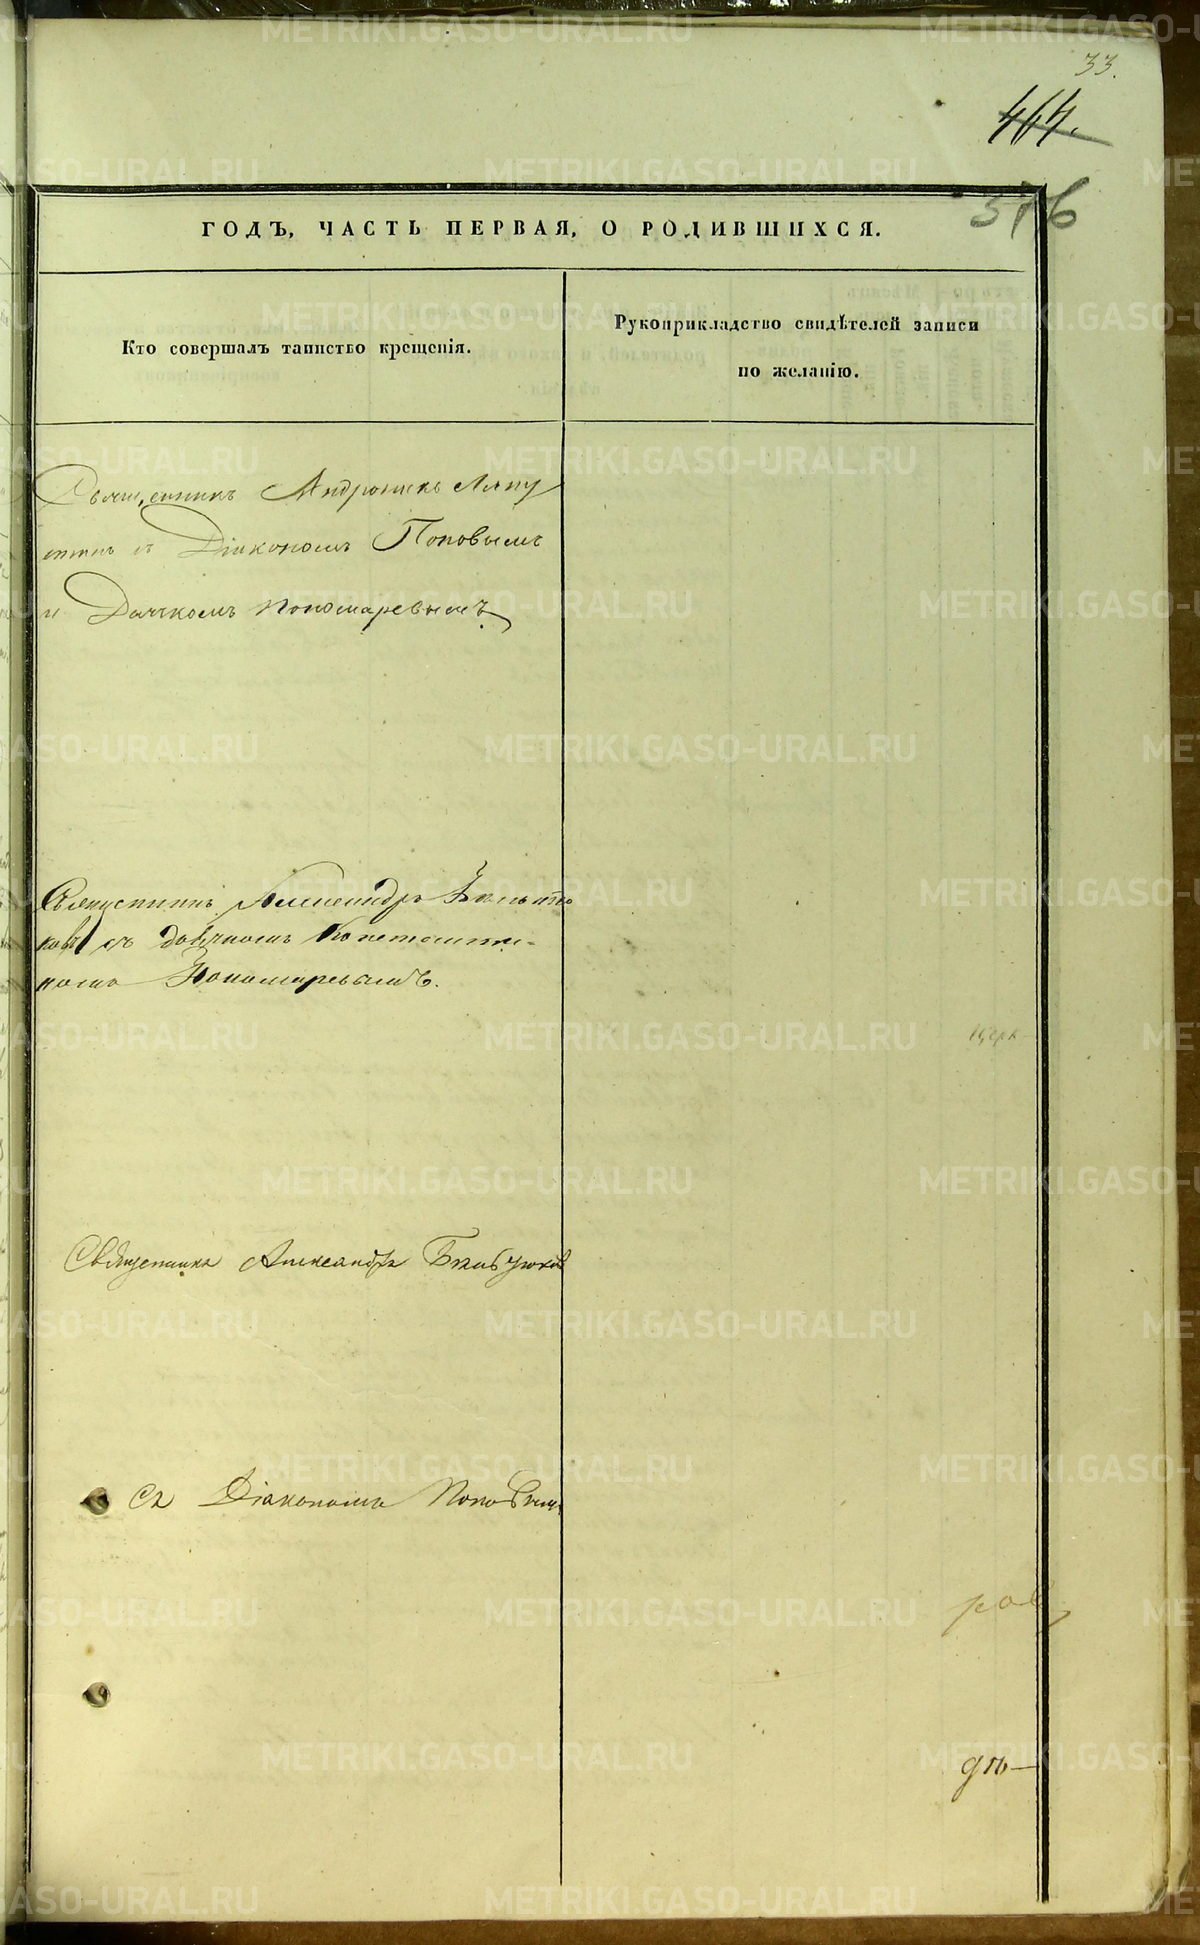 33.
464.
376
ГОДЪ, ЧАСТЬ ПЕРВАЯ, О РОДИВШИХСЯ.
Кто совершалъ таинство крещенія.
Рукоприкладство свидѣтелей записи
по желанію.
Священникъ Андроникъ Ляпу
стинъ съ Діакономъ Поповымъ
и Дьячкомъ Пономаревымъ
Священникъ Александръ
ковъ съ дьячкомъ Константи-
номъ Пономаревымъ.
Священникъ Александръ
Съ Діакономъ Поповымъ
METRIKI.GASO-URAL.RU